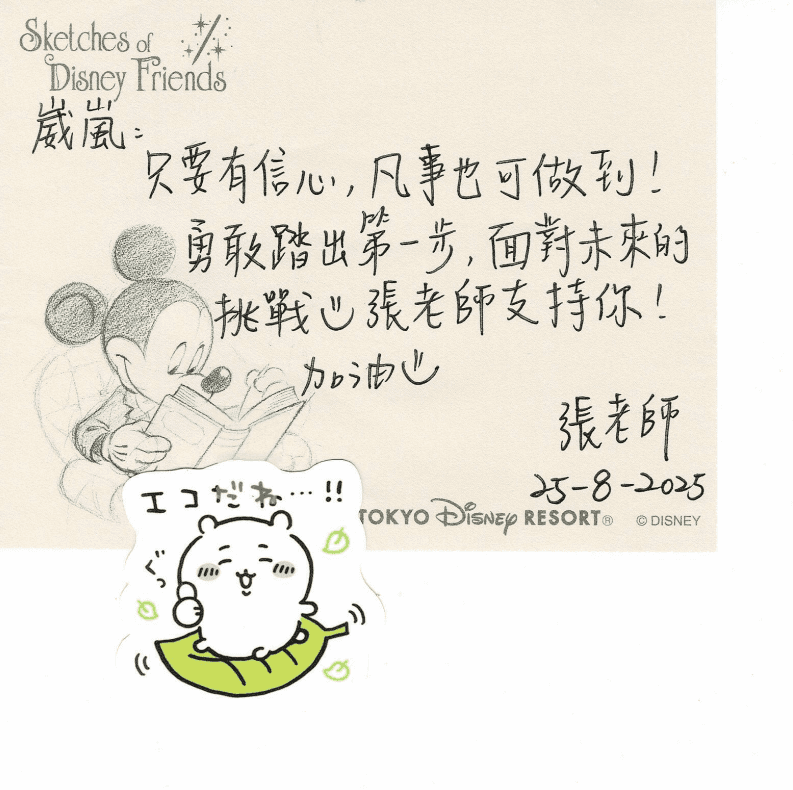 Sketches of
Disney Friends
崴嵐:
只要有信心,凡事也可做到!
勇敢踏出第一步,面對未來的
挑戰 張老師支持你!
加油
張老師
25-8-2025
TOKYO Disney RESORT® © DISNEY
エコだね…!!
ぐっ